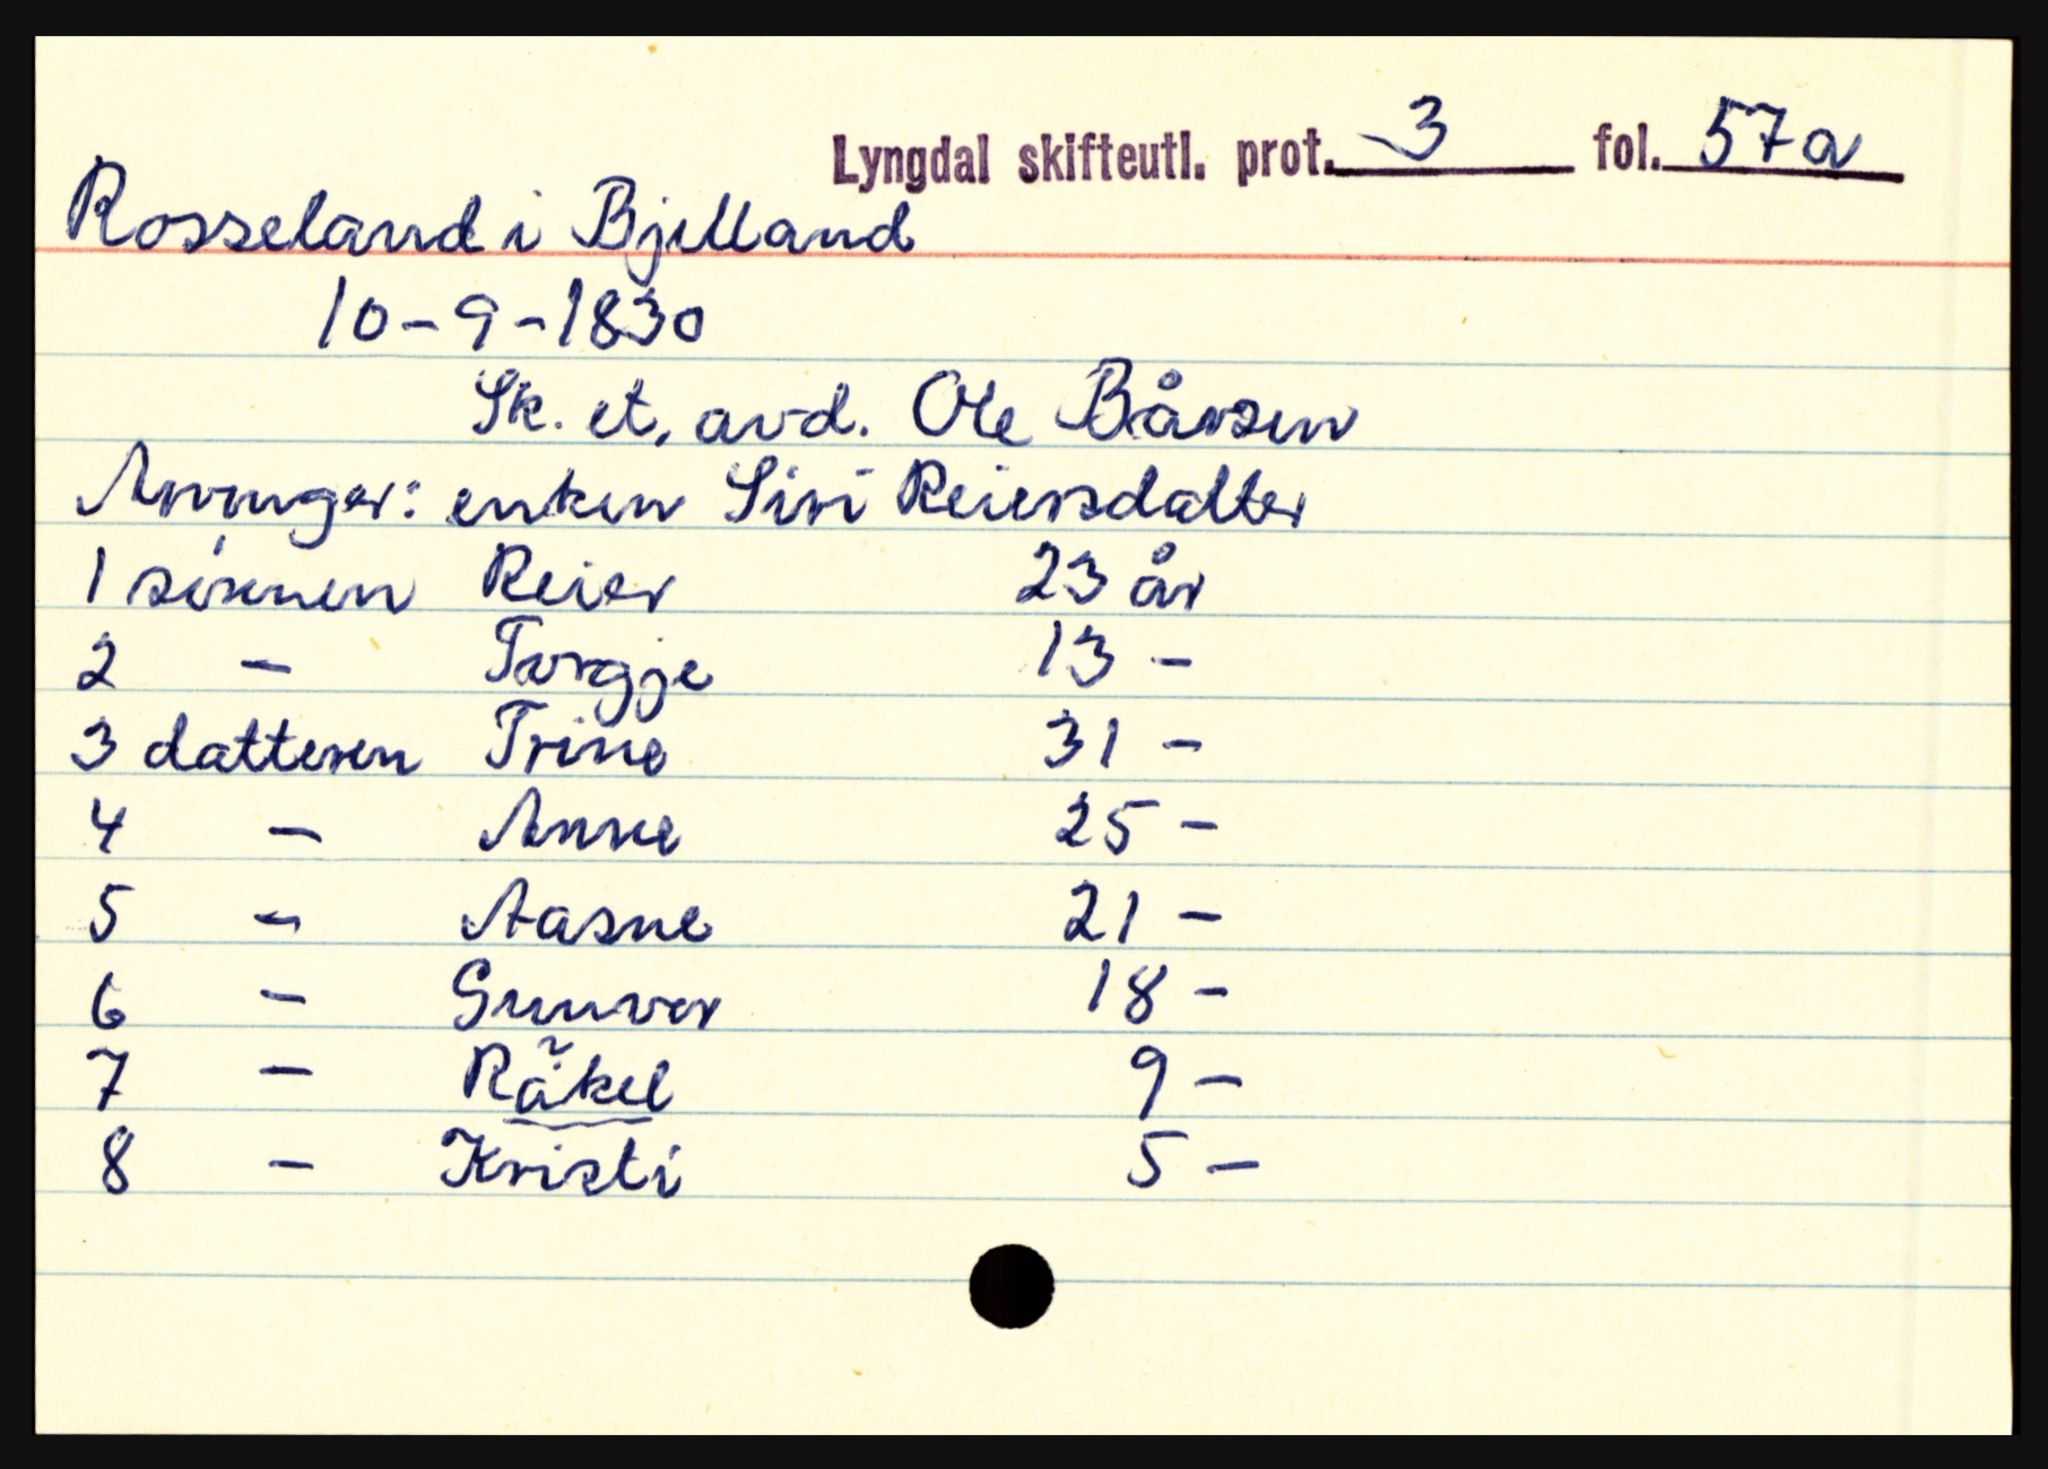 Lyngdal skifteutl. prot. 3 fol. 57a
Rosseland i Bjelland
10-9-1830
Sk. et. avd. Ole Bårsen
Arvinger: enken Siri Reiersdatter
1 sønnen Reier 23 år
2 - Torgje 13 -
3 datteren Trine 31 -
4 - Anne 25 -
5 - Aasne 21 -
6 - Gunvor 18 -
7 - Råkel 9 -
8 - Kristi 5 -